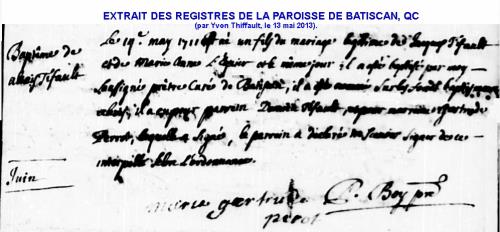 EXTRAIT DES REGISTRES DE LA PAROISSE DE BATISCAN, QC
(par Yvon Thiffault, le 13 mai 2013).
Baptême de
Tifault
Le 19e may 1711 est né un fils du mariage de Jacques Tifault
et de Marie Anne L'Equier et le même jour il a esté baptisé par moy
soussigné prêtre Curé de Batiscan, il a esté nommé sur les fonds
il a eu pour parrein Tifault, et pour marreine Gertrude
Perrot, laquelle a signé, le parrein a déclaré ne scavoir signer de ce
interpellé selon l'ordonnance.
Juin
maria gertrude
perot